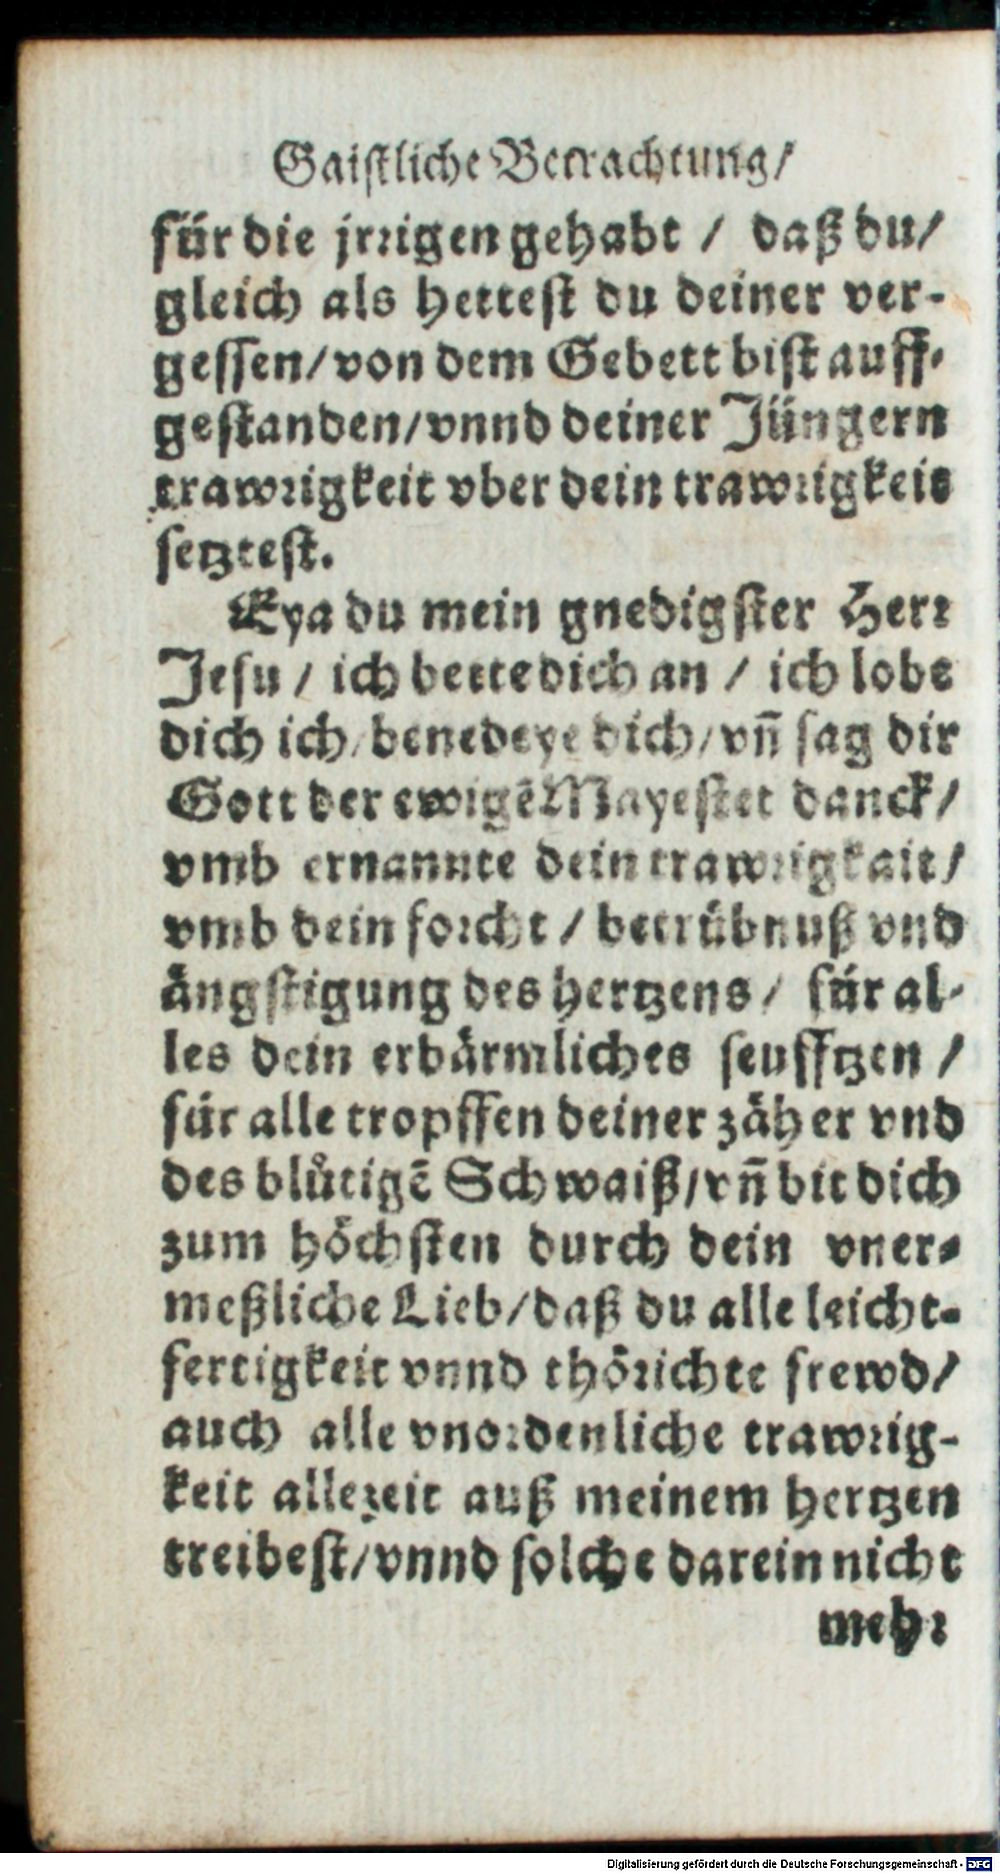 Gaistliche Betrachtung/
für die jrrigen gehabt / daß du/
gleich als hettest du deiner ver-
gessen/von dem Gebett bist auff-
gestanden/vnnd deiner Jüngern
trawrigkeit vber dein trawrigkeit
setztest.
Eya du mein gnedigster Herr
Jesu / ich bette dich an / ich lobe
dich ich/ benedeye dich/ vñ sag dir
Gott der ewigẽ Mayestet danck/
vmb ernannte dein trawrigkait/
vmb dein forcht / betrübnuß vnd
ängstigung des hertzens/ für al-
les dein erbärmliches seufftzen /
für alle tropffen deiner zäher vnd
des blůtigẽ Schwaiß/vñ bit dich
zum höchsten durch dein vner-
meßliche Lieb/daß du alle leicht-
fertigkeit vnnd thörichte frewd/
auch alle vnordenliche trawrig-
keit allezeit auß meinem hertzen
treibest/vnnd solche darein nicht
mehr
Digitalisierung gefördert durch die Deutsche Forschungsgemeinschaft - DFG